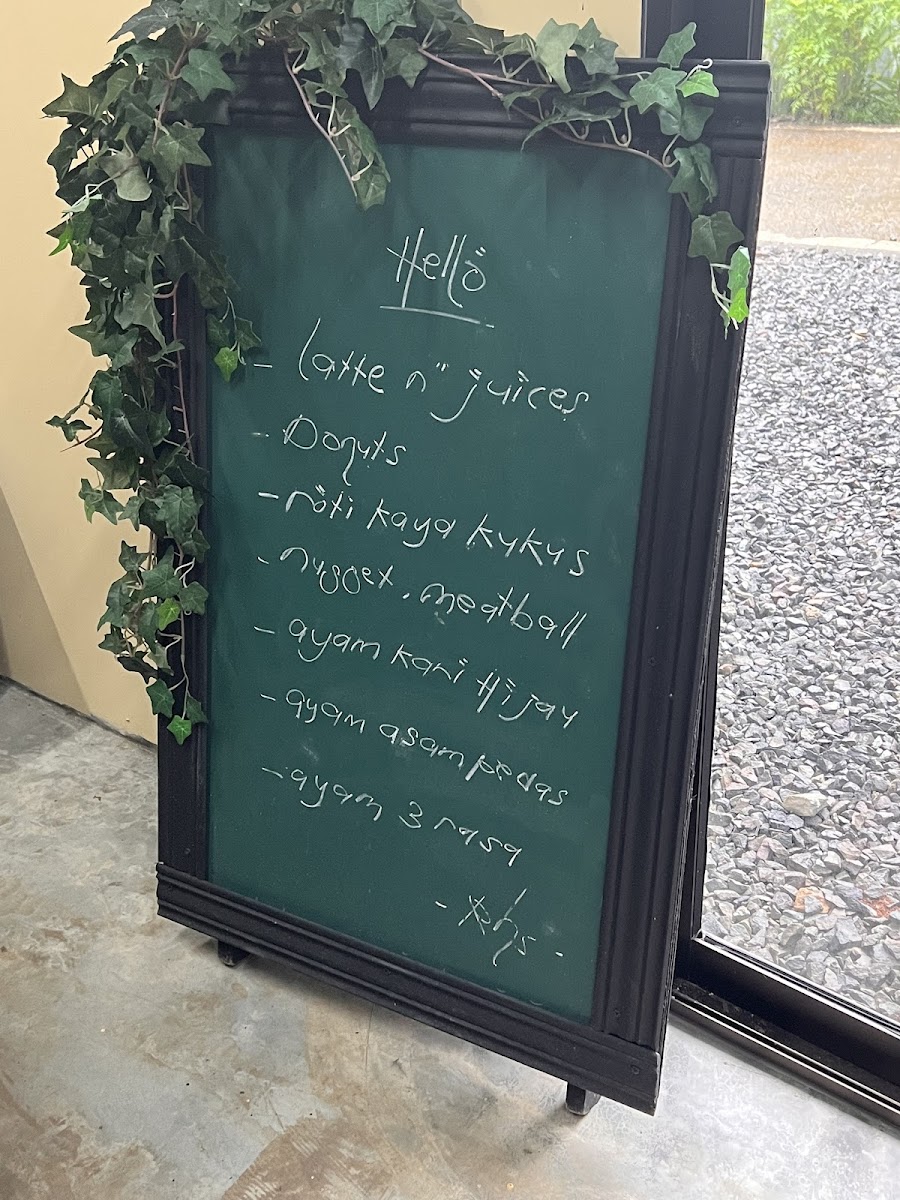 Hello
- latte n" juices
- Donuts
- roti kaya kukus
- nugget, meatball
- ayam kari Hijau
- ayam asam pedas
- ayam 3 rasa